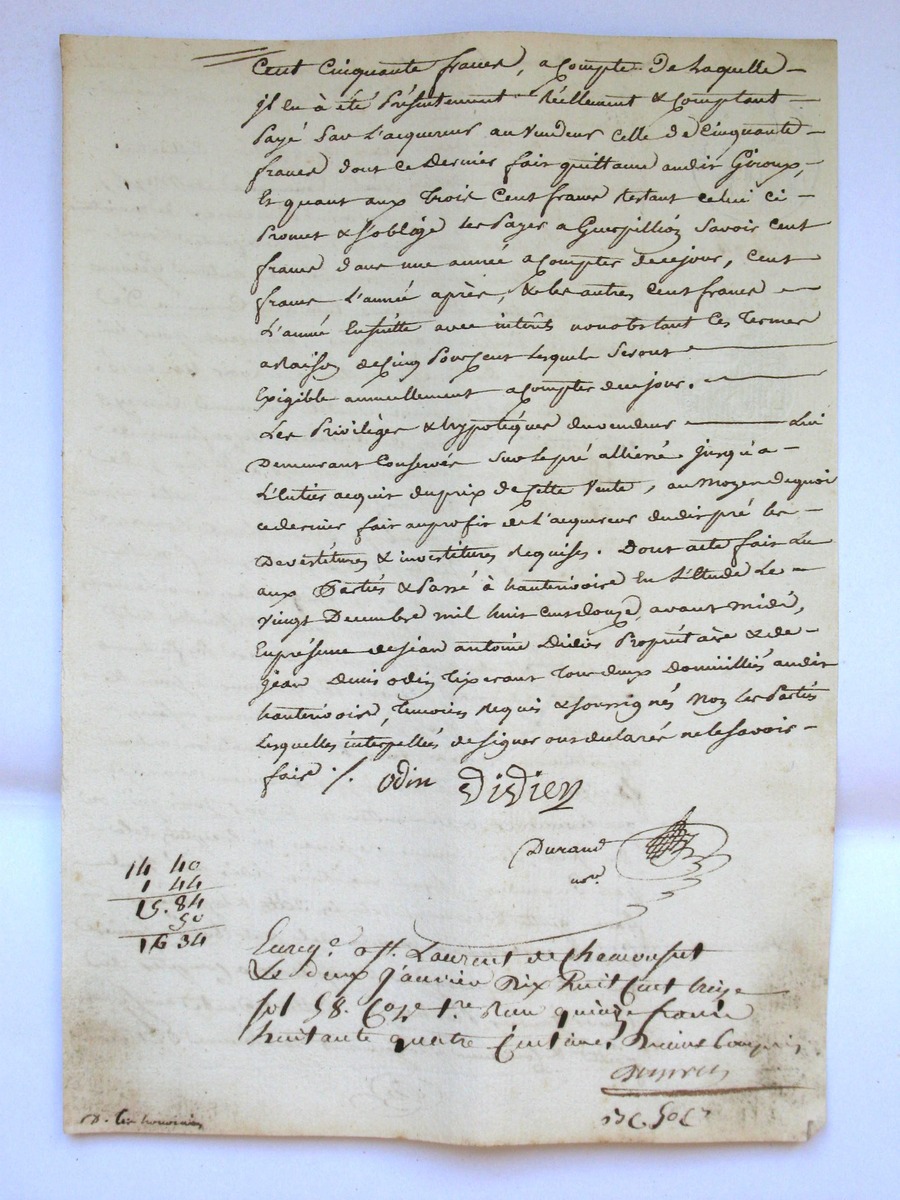 Cent Cinquante francs, a Compte De Laquelle
jl en à été Présentement Réellement & Comptant
Payé Par L'acquereur au Vendeur Celle de Cinquante
francs dont ce Dernier fait quittance audit Giroux,
Et quant aux Trois Cent francs Restant Celui ci
Promet & S'oblige les Payer a Savoir Cent
francs dans une année a Compter de ce jour, Cent
francs L'année après, & les autres Cent francs
L'année Ensuitte avec intérêts nonobstant Ces Termes
a Raison de Cinq Pour Cent Lesquels Seront
Exigible annuellement a Compter de ce jour.
Les Privilèges & hypotéques du vendeur Lui
Demeurant Conservés Sur Le pré alliéné jusqu'a
L'Entier acquit du prix de Cette Vente, au Moyen de quoi
ce dernier fait au profit de L'acquereur dudit pré les
Devestitures & investitures Requises. Dont acte fait Lu
aux Parties & Passé à hauterivoire En L'Etude Le
Vingt Decembre mil huit cent Douze, avant midi,
En présence de Jean antoine Didier Propriétaire & de
jean Denis odin Tixerant Tous deux Domiciliés audit
hauterivoire, Temoins Requis & Soussignés Non les Parties
Lesquelles interpellées de Signer ont declarés ne le Savoir
faire ./. odin Didier
Durand
nore.
14 40
1 44
15.84
50
16 34
Enregé. a St. Laurent de Chamousset
Le deux janvier Dix huit Cent treize
fol 58. Case 1re. Reçu quinze francs
huitante quatre Centimes